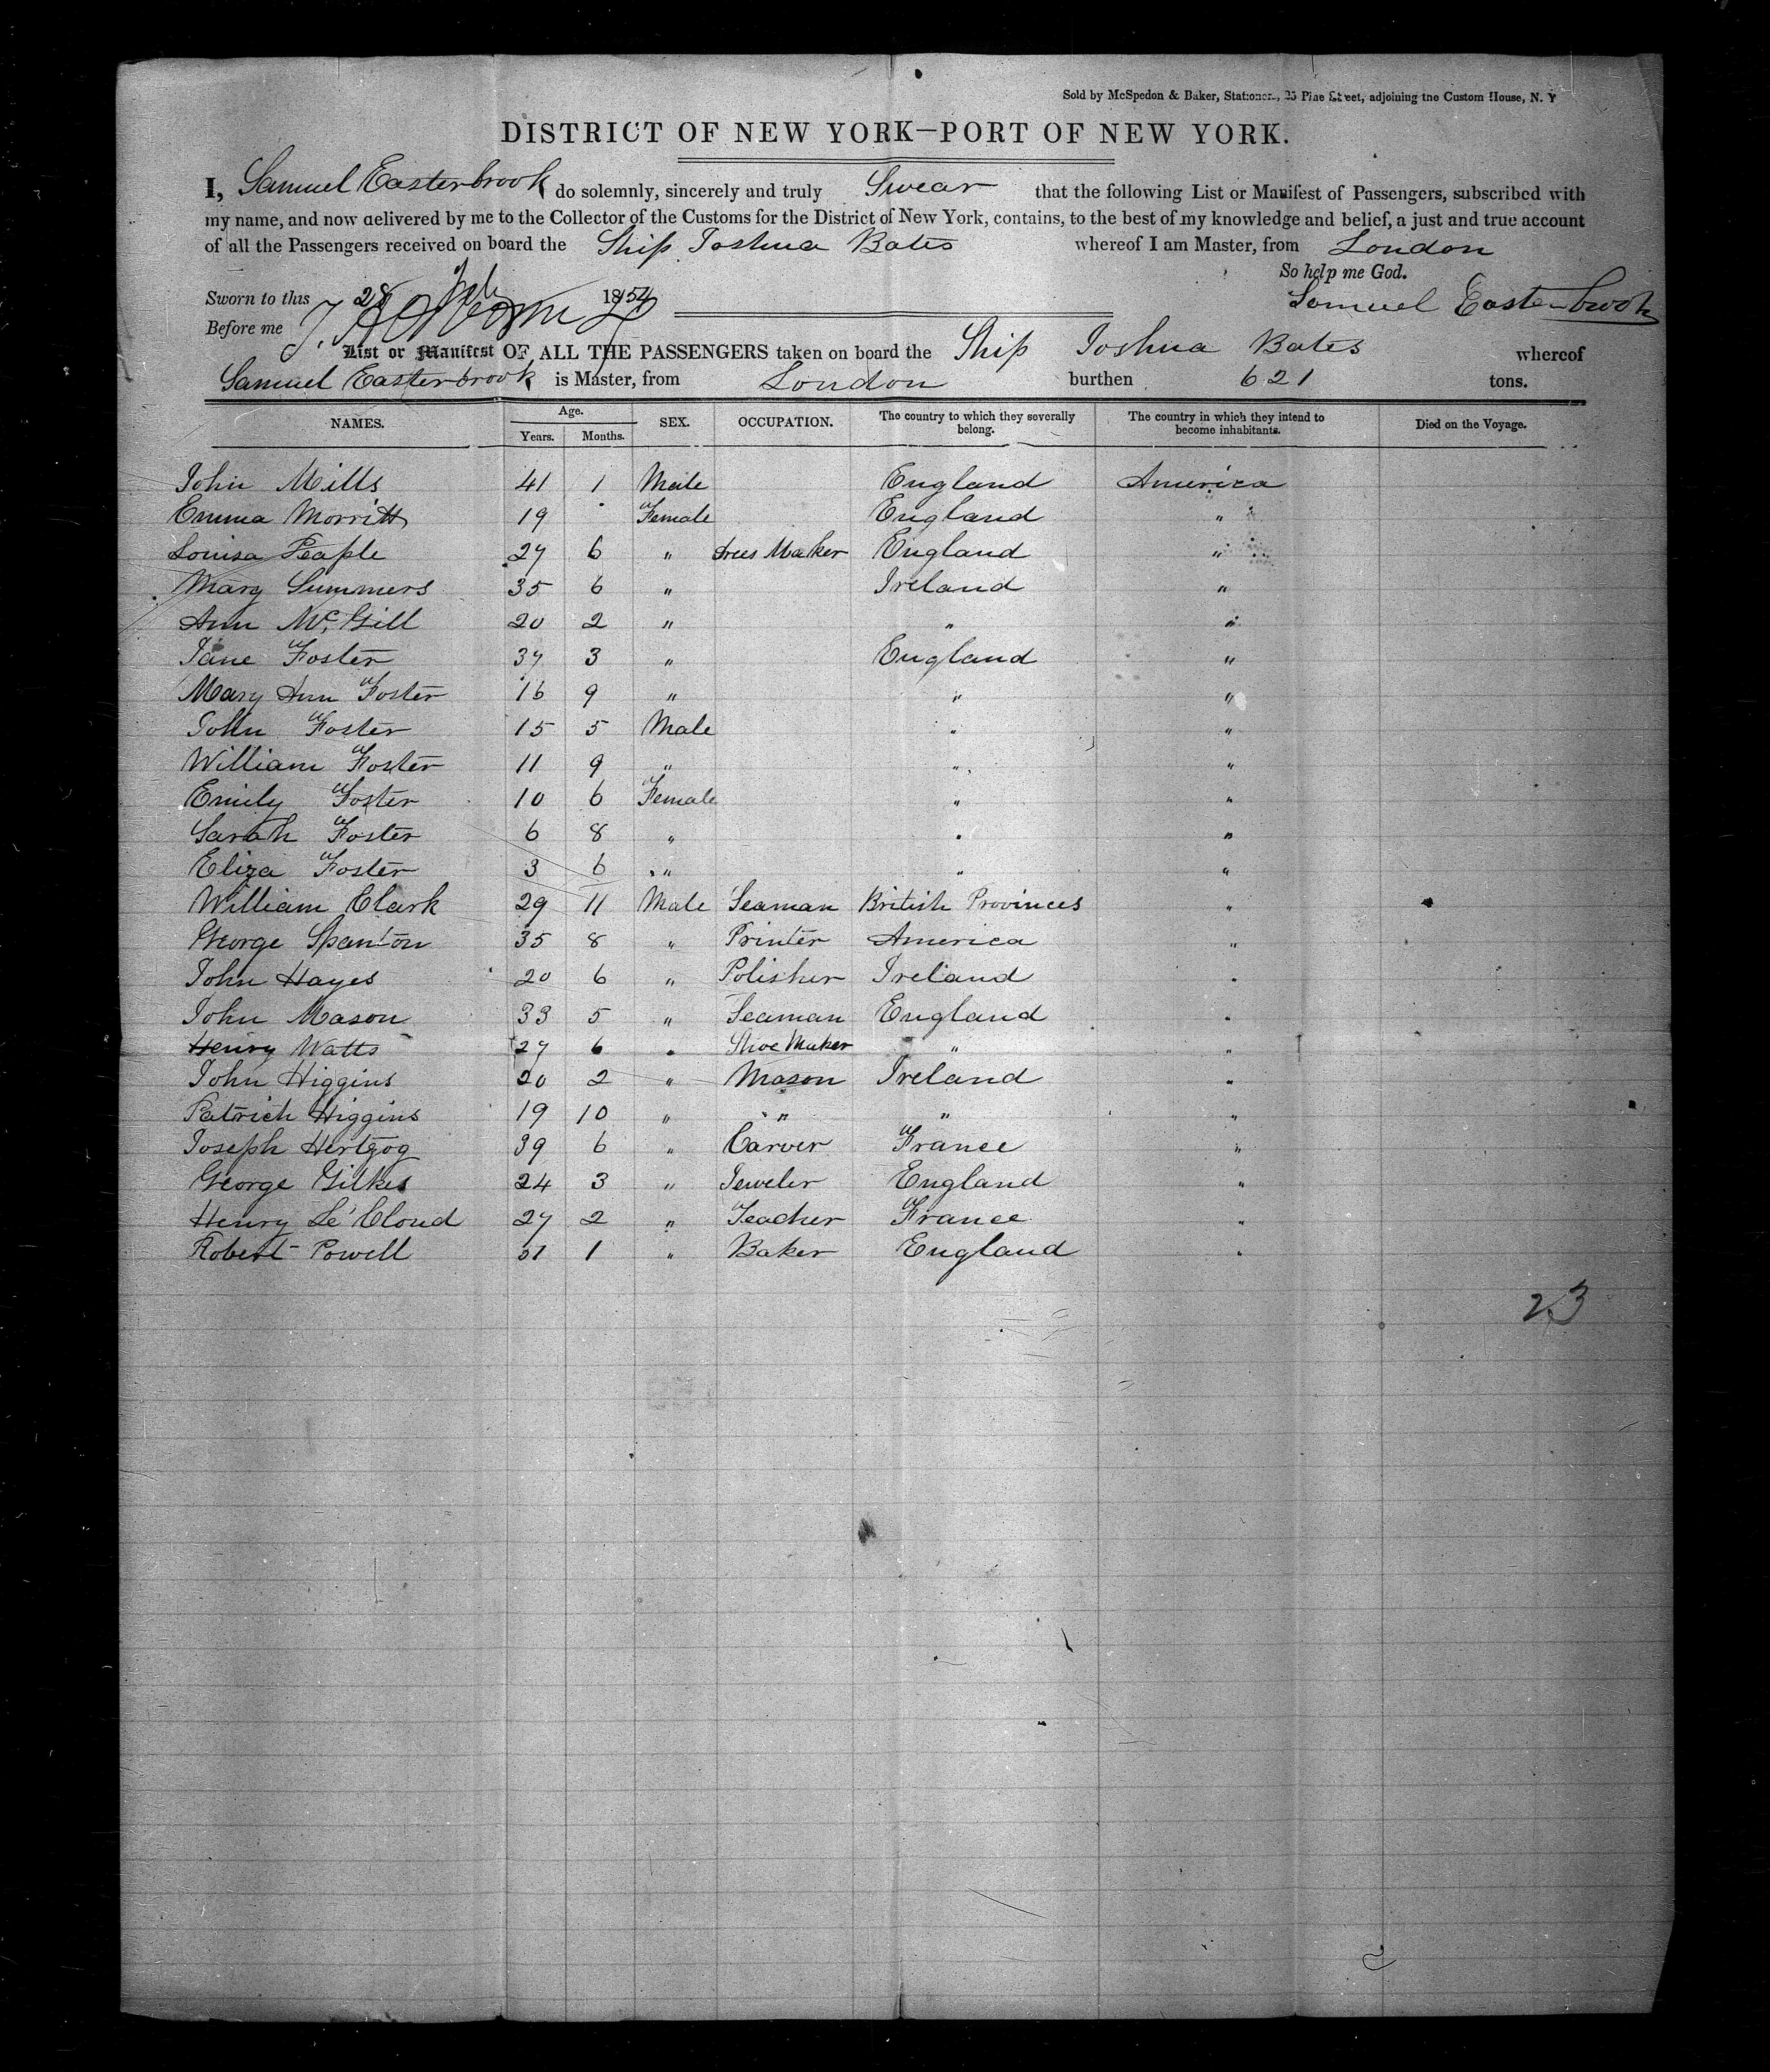 Sold by McSpedon & Baker, Stationers, 25 Pine Street, adjoining the Custom House, N. Y
DISTRICT OF NEW YORK—PORT OF NEW YORK.
I, Samuel Easterbrook do solemnly, sincerely and truly Swear that the following List or Manifest of Passengers, subscribed with
my name, and now delivered by me to the Collector of the Customs for the District of New York, contains, to the best of my knowledge and belief, a just and true account
of all the Passengers received on board the Ship Joshua Bates whereof I am Master, from London
So help me God.
Sworn to this 28 1854 Samuel Easterbrook
Before me
List or Manifest OF ALL THE PASSENGERS taken on board the Ship Joshua Bates whereof
Samuel Easterbrook is Master, from London burthen 621 tons.
NAMES. Age. Years. Months. SEX. OCCUPATION. The country to which they severally belong. The country in which they intend to become inhabitants. Died on the Voyage.
John Mills 41 1 Male England America
Emma Morritt 19 Female England "
Louisa Peaple 27 6 " Drees Maker England "
Mary Summers 35 6 " Ireland "
Ann McGill 20 2 " " "
Jane Foster 37 3 " England "
Mary Ann Foster 16 9 " " "
John Foster 15 5 Male " "
William Foster 11 9 " " "
Emily Foster 10 6 Female " "
Sarah Foster 6 8 " " "
Eliza Foster 3 6 " " "
William Clark 29 11 Male Seaman British Provinces "
George Spanton 35 8 " Printer America "
John Hayes 20 6 " Polisher Ireland "
John Mason 33 5 " Seaman England "
Henry Watts 27 6 " Shoe Maker " "
John Higgins 20 2 " Mason Ireland "
Patrick Higgins 19 10 " " " "
Joseph Hertzog 39 6 " Carver France "
George Gilkes 24 3 " Jeweler England "
Henry Le'Cloud 27 2 " Teacher France "
Robert Powell 31 1 " Baker England "
23